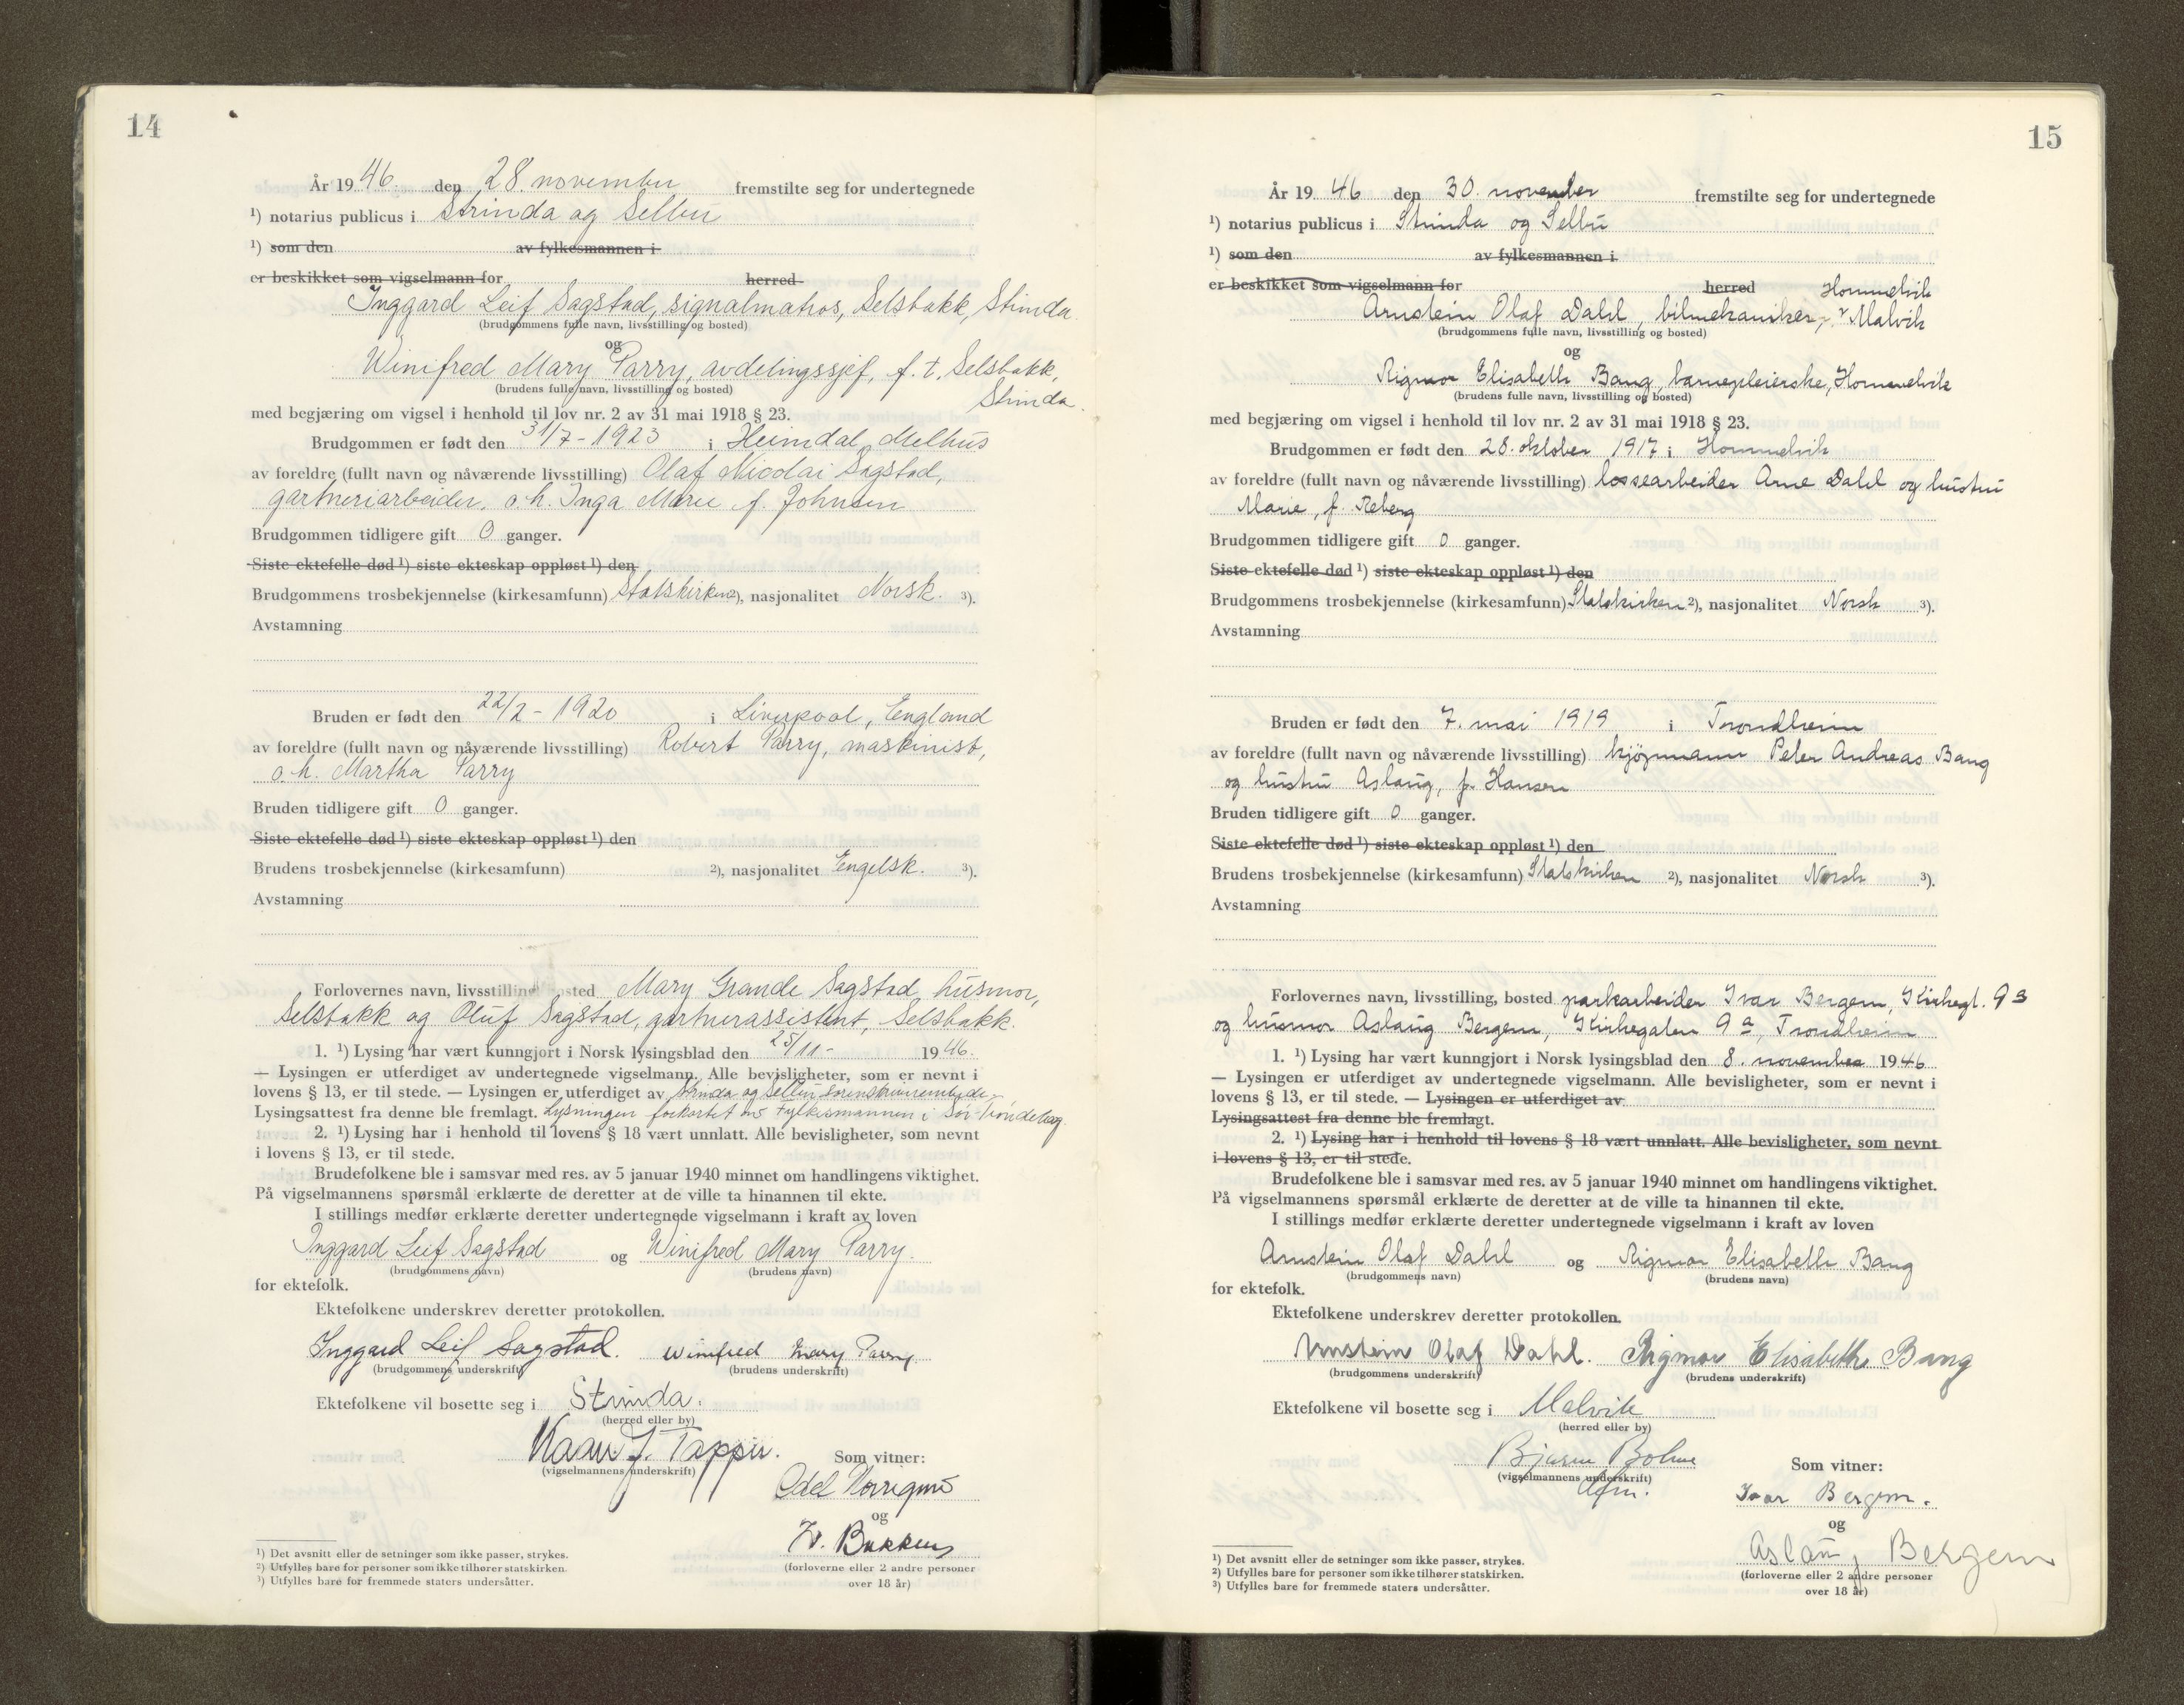 14
År 19 46. den 28. november fremstilte seg for undertegnede
¹) notarius publicus i Strinda og Selbu
¹) som den av fylkesmannen i
er beskikket som vigselmann for herred
Inggard Leif Sagstad, signalmatros, Selsbakk, Strinda
(brudgommens fulle navn, livsstilling og bosted)
og
Winifred Mary Parry, avdelingssjef, f. t. Selsbakk,
(brudens fulle navn, livsstilling og bosted)
Strinda.
med begjæring om vigsel i henhold til lov nr. 2 av 31 mai 1918 § 23.
Brudgommen er født den 31/7 - 1923 i Heimdal, Melhus
av foreldre (fullt navn og nåværende livsstilling) Olaf Nicolai Sagstad,
gartneriarbeider, o. h. Inga Marie f. Johnsen
Brudgommen tidligere gift 0 ganger.
Siste ektefelle død ¹) siste ekteskap oppløst ¹) den
Brudgommens trosbekjennelse (kirkesamfunn) Statskirken ²), nasjonalitet Norsk. ³).
Avstamning
Bruden er født den 22/2 - 1920 i Liverpool, England
av foreldre (fullt navn og nåværende livsstilling) Robert Parry, maskinist,
o. h. Martha Parry
Bruden tidligere gift 0 ganger.
Siste ektefelle død ¹) siste ekteskap oppløst ¹) den
Brudens trosbekjennelse (kirkesamfunn) ²), nasjonalitet Engelsk. ³).
Avstamning
Forlovernes navn, livsstilling, bosted Mary Grande Sagstad, husmor,
Selsbakk og Oluf Sagstad, gartnerassistent, Selsbakk.
1. ¹) Lysing har vært kunngjort i Norsk lysingsblad den 25/11 - 19 46.
— Lysingen er utferdiget av undertegnede vigselmann. Alle bevisligheter, som er nevnt i
lovens § 13, er til stede. — Lysingen er utferdiget av Strinda og Selbu sorenskriverembede
Lysingsattest fra denne ble fremlagt. Lysningen forkortet av Fylkesmannen i Sør-Trøndelag.
2. ¹) Lysing har i henhold til lovens § 18 vært unnlatt. Alle bevisligheter, som nevnt
i lovens § 13, er til stede.
Brudefolkene ble i samsvar med res. av 5 januar 1940 minnet om handlingens viktighet.
På vigselmannens spørsmål erklærte de deretter at de ville ta hinannen til ekte.
I stillings medfør erklærte deretter undertegnede vigselmann i kraft av loven
Inggard Leif Sagstad og Winifred Mary Parry.
(brudgommens navn) (brudens navn)
for ektefolk.
Ektefolkene underskrev deretter protokollen.
Inggard Leif Sagstad. Winifred Mary Parry.
(brudgommens underskrift) (brudens underskrift)
Ektefolkene vil bosette seg i Strinda.
(herred eller by)
J. Tapper.
(vigselmannens underskrift) Som vitner:
Odel
og
Bakken
(forloverne eller 2 andre personer
over 18 år)
¹) Det avsnitt eller de setninger som ikke passer, strykes.
²) Utfylles bare for personer som ikke tilhører statskirken.
³) Utfylles bare for fremmede staters undersåtter.
15
År 19 46 den 30. november fremstilte seg for undertegnede
¹) notarius publicus i Strinda og Selbu
¹) som den av fylkesmannen i
er beskikket som vigselmann for herred Hommelvik
Arnstein Olaf Dahl, bilmekaniker, Malvik
(brudgommens fulle navn, livsstilling og bosted)
og
Rigmor Elisabeth Bang, barnepleierske, Hommelvik
(brudens fulle navn, livsstilling og bosted)
med begjæring om vigsel i henhold til lov nr. 2 av 31 mai 1918 § 23.
Brudgommen er født den 28. oktober 1917 i Hommelvik
av foreldre (fullt navn og nåværende livsstilling) lossearbeider Arne Dahl og hustru
Marie, f. Reberg
Brudgommen tidligere gift 0 ganger.
Siste ektefelle død ¹) siste ekteskap oppløst ¹) den
Brudgommens trosbekjennelse (kirkesamfunn) Statskirken ²), nasjonalitet Norsk ³).
Avstamning
Bruden er født den 7. mai 1919 i Trondheim
av foreldre (fullt navn og nåværende livsstilling) kjøpmann Peter Andreas Bang
og hustru Aslaug, f. Hansen
Bruden tidligere gift 0 ganger.
Siste ektefelle død ¹) siste ekteskap oppløst ¹) den
Brudens trosbekjennelse (kirkesamfunn) Statskirken ²), nasjonalitet Norsk ³).
Avstamning
Forlovernes navn, livsstilling, bosted parkarbeider Ivar Bergem, Kirkegt. 9 a
og husmor Aslaug Bergem, Kirkegaten 9 a, Trondheim
1. ¹) Lysing har vært kunngjort i Norsk lysingsblad den 8. november 1946
— Lysingen er utferdiget av undertegnede vigselmann. Alle bevisligheter, som er nevnt i
lovens § 13, er til stede. — Lysingen er utferdiget av
Lysingsattest fra denne ble fremlagt.
2. ¹) Lysing har i henhold til lovens § 18 vært unnlatt. Alle bevisligheter, som nevnt
i lovens § 13, er til stede.
Brudefolkene ble i samsvar med res. av 5 januar 1940 minnet om handlingens viktighet.
På vigselmannens spørsmål erklærte de deretter at de ville ta hinannen til ekte.
I stillings medfør erklærte deretter undertegnede vigselmann i kraft av loven
Arnstein Olaf Dahl og Rigmor Elisabeth Bang
(brudgommens navn) (brudens navn)
for ektefolk.
Ektefolkene underskrev deretter protokollen.
Arnstein Olaf Dahl. Rigmor Elisabeth Bang
(brudgommens underskrift) (brudens underskrift)
Ektefolkene vil bosette seg i Malvik
(herred eller by)
Bjarne Bohne
(vigselmannens underskrift) Som vitner:
Ivar Bergem.
og
Aslaug Bergem
(forloverne eller 2 andre personer
over 18 år)
¹) Det avsnitt eller de setninger som ikke passer, strykes.
²) Utfylles bare for personer som ikke tilhører statskirken.
³) Utfylles bare for fremmede staters undersåtter.